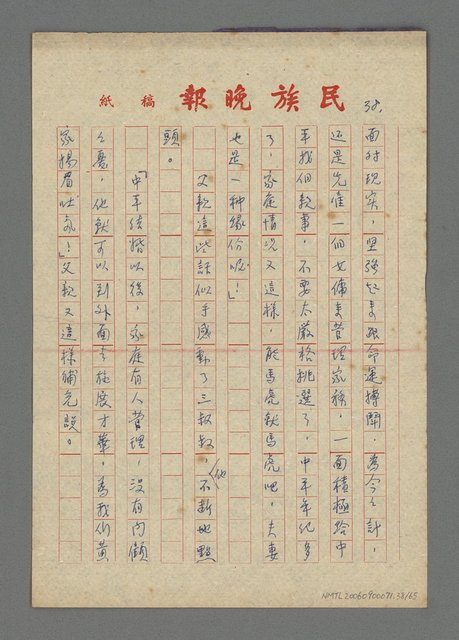 民族晚報 稿紙
38.
面對現實，堅強起來跟命運搏鬪，為今之計，
還是先僱一個女傭來管理家務，一面積極給中
平找個親事，不要太嚴格挑選了，中平年紀多
了，家庭情況又這樣，能馬虎就馬虎吧，夫妻
也是一種緣份呢！」
父親這些話似乎感動了三叔叔，他不斷地點
頭。
「中平結婚以後，家庭有人管理，沒有內顧
之憂，他就可以到外面去施展才華，為我們黃
家揚眉吐氣！」父親又這樣補充說。
NMTL20060900071.38/65